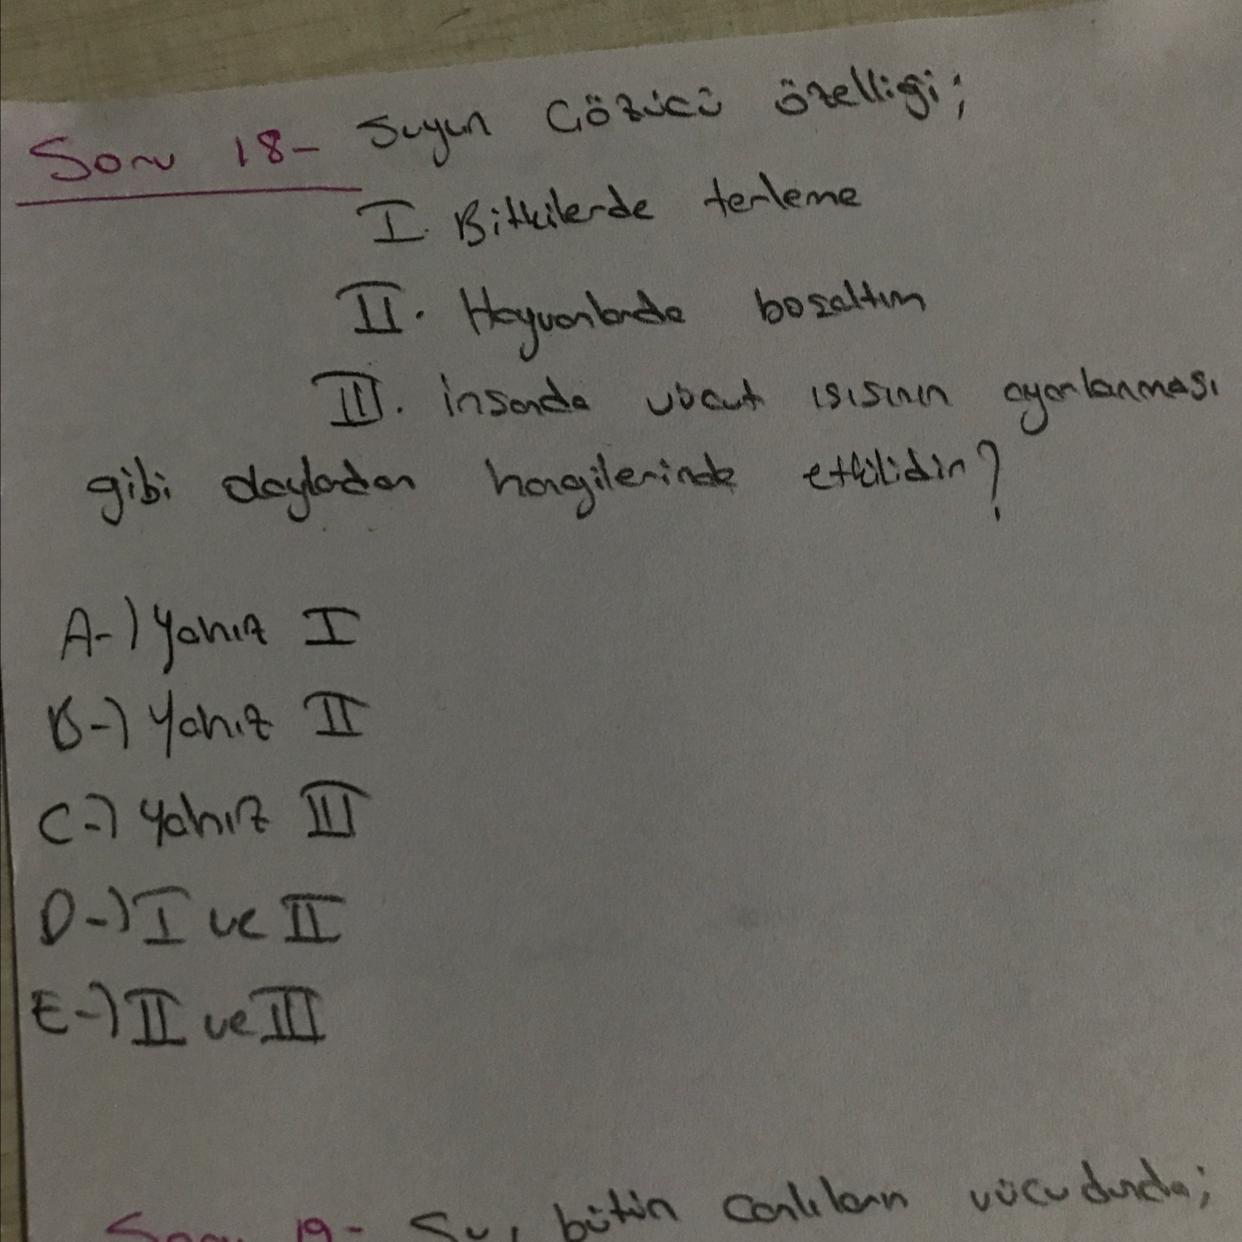 Soru 18- Suyun Çözücü özelliği;
I. Bitkilerde terleme
II. Hayvanlarda boşaltım
III. insanda vücut ısısının ayarlanması
gibi olaylardan hangilerinde etkilidir?
A-) Yalnız I
B-) Yalnız II
C-) Yalnız III
D-) I ve II
E-) II ve III
Soru 19- Su, bütün canlıların vücudunda;